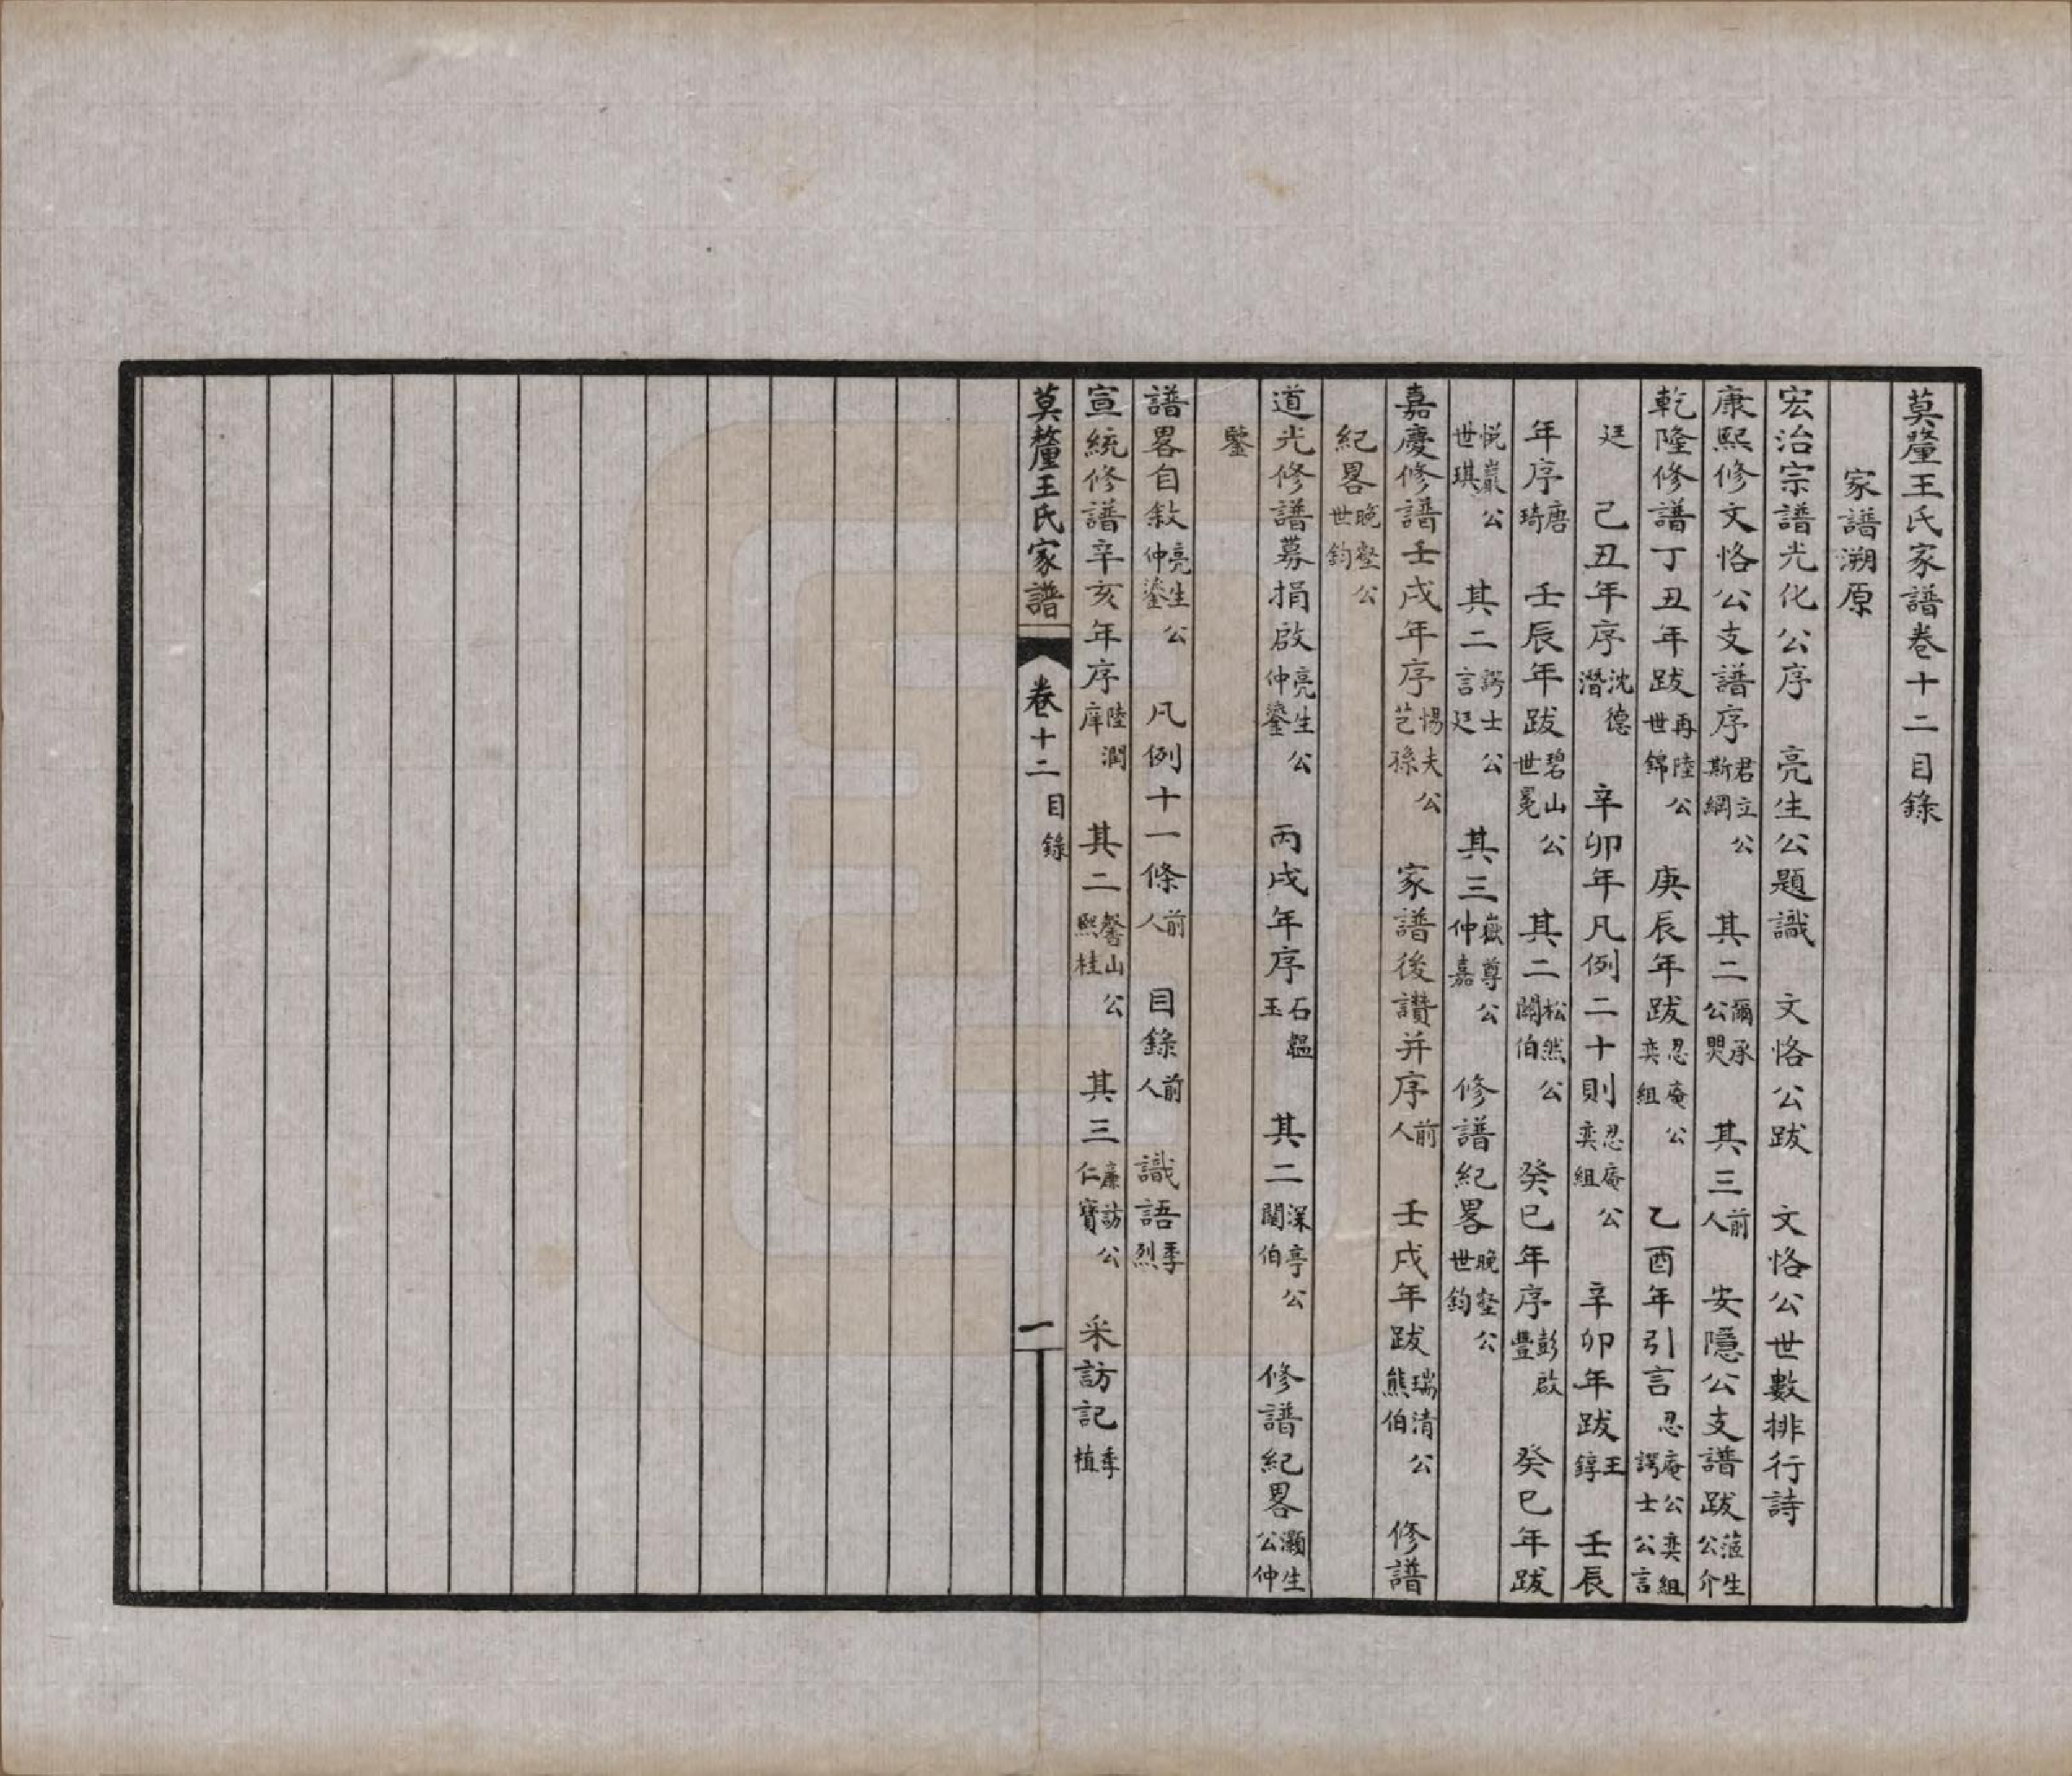 莫釐王氏家譜卷十二目錄
家譜溯原
宏治宗譜光化公序 亮生公題識 文恪公跋 文恪公世數排行詩
康熙修文恪公支譜序君立公斯綱 其二爾承公煚 其三前人 安隱公支譜跋蒞生公介
乾隆修譜丁丑年跋再陸公世錦 庚辰年跋忍庵公奕組 乙酉年引言忍庵公奕組謣士公言
廷 己丑年序沈德潛 辛卯年凡例二十則忍庵公奕組 辛卯年跋王錞 壬辰
年序唐琦 壬辰年跋碧山公世冕 其二松然公闓伯 癸巳年序彭啟豐 癸巳年跋
悅巖公世琪 其二謣士公言廷 其三嶽尊公仲嘉 修譜紀畧晚壑公世鈞
嘉慶修譜壬戌年序惕夫公芑孫 家譜後讚并序前人 壬戌年跋瑞清公熊伯 修譜
紀畧晚壑公世鈞
道光修譜募捐啟亮生公仲鎏 丙戌年序石韞玉 其二深亭公闓伯 修譜紀畧灝生公仲
鑒
譜畧自敘亮生公仲鎏 凡例十一條前人 目錄前人 識語季烈
宣統修譜辛亥年序陸潤庠 其二馨山公熙桂 其三廉訪公仁寶 采訪記季植
莫釐王氏家譜 卷十二 目錄 一